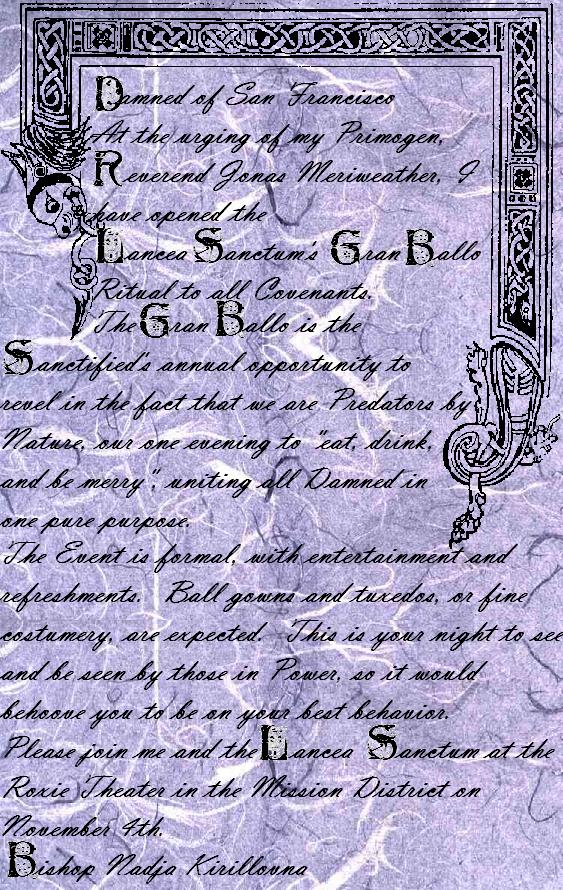 Damned of San Francisco
At the urging of my Primogen,
Reverend Jonas Meriweather, I
have opened the
Lancea Sanctum's Gran Ballo
Ritual to all Covenants.
The Gran Ballo is the
Sanctified's annual opportunity to
revel in the fact that we are Predators by
Nature, our one evening to "eat, drink,
and be merry", uniting all Damned in
one pure purpose.
The Event is formal, with entertainment and
refreshments. Ball gowns and tuxedos, or fine
costumery, are expected. This is your night to see
and be seen by those in Power, so it would
behoove you to be on your best behavior.
Please join me and the Lancea Sanctum at the
Roxie Theater in the Mission District on
November 4th.
Bishop Nadja Kirillovna